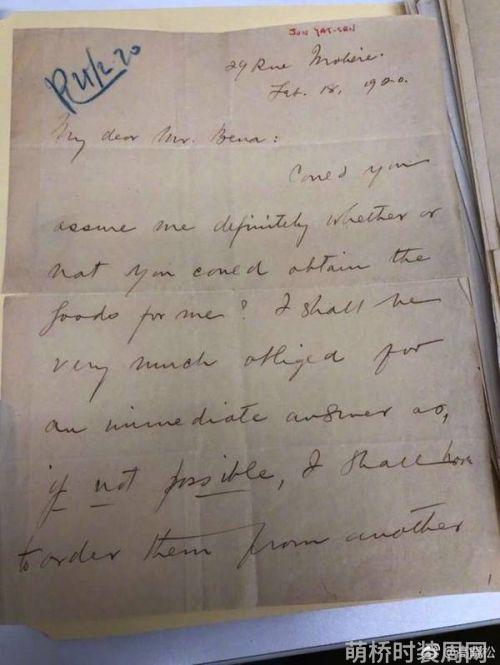 SUN YAT-SEN
R 21/2.20
29 Rue Moliere.
Feb. 18, 1920.
My dear Mr. Bena:
Could you
assure me definitely whether or
not you could obtain the
goods for me? I shall be
very much obliged for
an immediate answer as,
if not possible, I shall have
to order them from another
萌桥时装周网